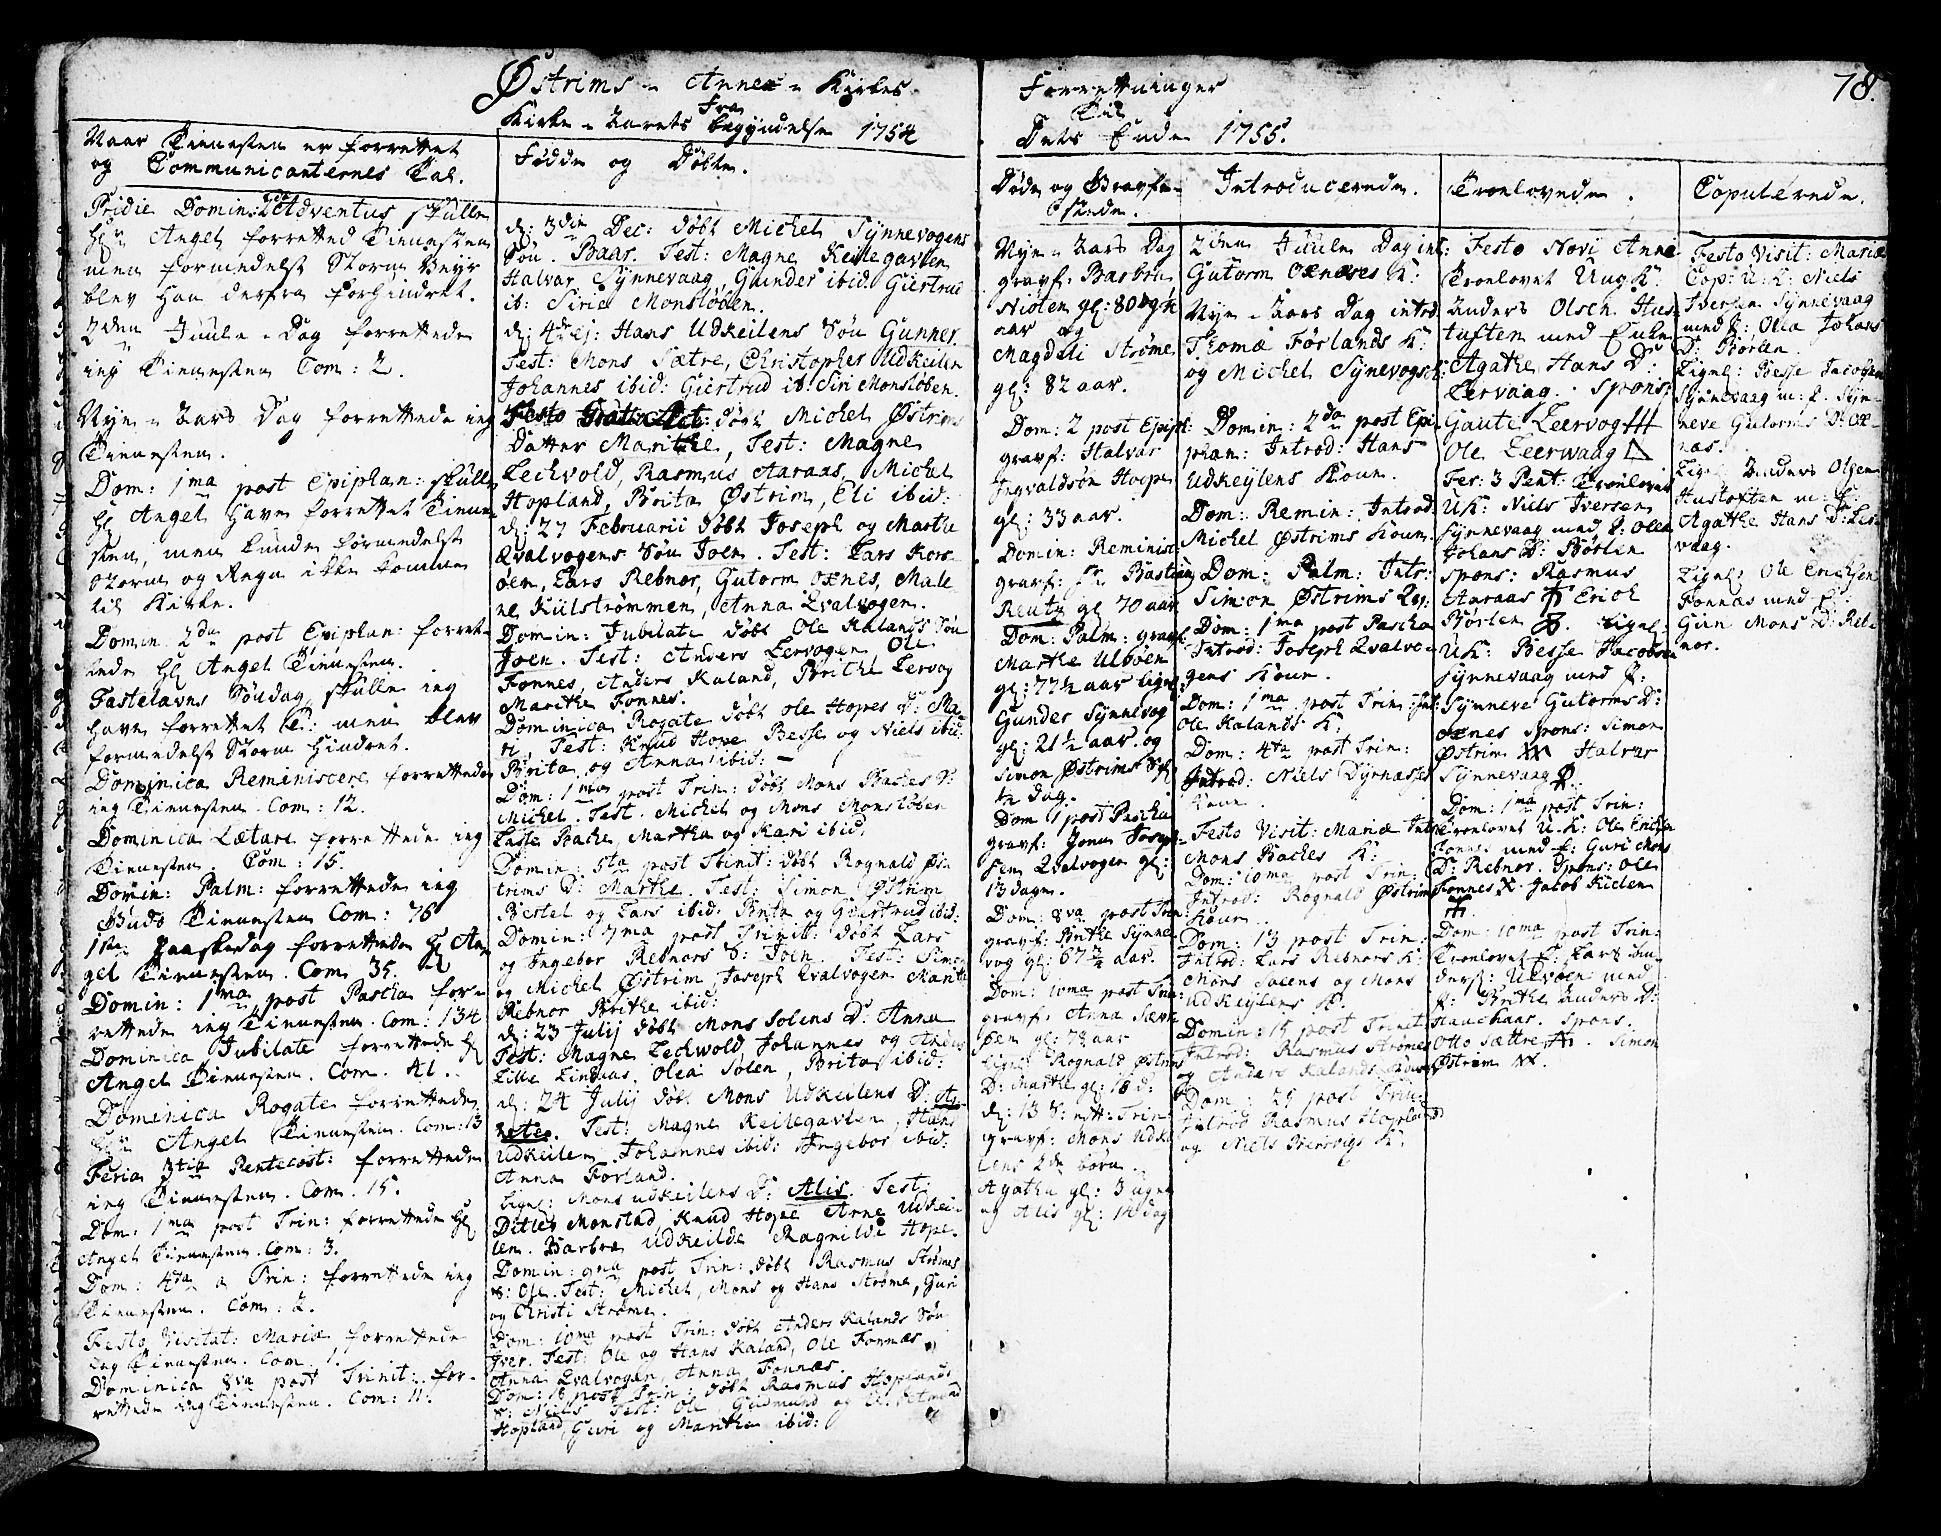 Østrims - Annex - Kirkes
Fra
Kirke - Aarets begyndelse 1754
Naar Tienesten er forrettet
og Communicanternes Tal.
Pridie Domin: 2da Adventus skulle
Hr Angel forretted Tienesten
men formedelst Storm Veyr
blev han derfra forhindret.
2den Juule - Dag forrettede
ieg Tienesten Com: 2.
Nye - Aars Dag forrettede ieg
Tienesten.
Dom: 1ma post Epiphan: skulle
Hr Angel have forrettet Tiene-
sten, men kunde formedelst
Storm og Regn ikke komme
til Kirke.
Domin 2da post Epiphan: forret-
tede Hr Angel Tienesten.
Fastelavns Søndag skulle ieg
have forrettet T: men blev
formedelst Storm hindret.
Dominica Reminiscere forrettede
ieg Tienesten. Com: 12.
Dominica Lætare forrettede ieg
Tienesten. Com: 15.
Domin: Palm: forrettede ieg
Guds Tienesten Com: 76
1ste Paaskedag forrettede Hr An-
gel Tienesten. Com. 35.
Domin: 1ma post Pascha for-
rettede ieg Tienesten. Com: 134
Dominica Jubilate forrettede Hr
Angel Tienesten. Com. 41.
Dominica Rogate forrettede
Hr Angel Tienesten. Com: 13
Feria 3tia Pentecost: forrettede
ieg Tienesten. Com. 15.
Dom: 1ma post Trin: forrettede Hr
Angel Tienesten. Com: 3.
Dom: 4ta a Trin: forrettede ieg
Tienesten. Com: 2.
Festo Visitat: Mariæ forrettede
ieg Tienesten. Com. 1.
Dominica 8va post Trinit: for-
rettede ieg Tienesten. Com: 11.
Fødde og Døbte.
d: 3die Dec: døbt Michel Synnevogens
Søn. Baar. Test: Magne Keilegavlen
Halvar Synnevaag, Gunder ibid. Giertrud
ib: Siri Monsløben.
d: 4de ej: Hans Udkeilens Søn Gunner.
Test: Mons Sætre, Christopher Udkeilen
Johannes ibid: Giertrud ib. Siri Monsløben.
Festo døbt Michel Østrims
Datter Marithe, Test: Magne
Lechvold, Rasmus Aaraas, Michel
Hopland, Brita Østrim, Eli ibid:
d: 27 Februarii døbt Joseph og Marthe
Qvalvogens Søn Joen. Test: Lars Kors-
øen, Lars Rebnor, Gutorm Oxnes, Male-
ne Kiilstrømmen, Anna Qvalvogen.
Domin: Jubilate døbt Ole Kalands Søn
Joen. Test: Anders Lervogen Ole
Fonnes, Anders Kaland, Brithe Lervog
Marithe Fonnes.
Dominica Rogate døbt Ole Hopes D: Ma-
ri, Test: Knud Hope Besse og Niels ibid:
Brita og Anna ibid: —
Dom: 1ma post Trin: døbt Mons Baches S:
Michel. Test. Michel og Mons Monsløben
Lasse Bache, Martha og Kari ibid:
Domin: 5ta post Trinit: døbt Rognald Øs-
trims D: Marthe. Test: Simon Østrim
Bertel og Lars ibid: Brita og Giertrud ibid:
Domin: 7ma post Trinit: døbt Lars
og Ingebor Rebnors S: Joen. Test: Simon
og Michel Østrim, Joseph Qvalvogen Marite
Rebnor Brithe ibid:
d: 23 Julij døbt Mons Solens D: Anna
Test: Magne Lechwold Johannes og Anders
Lille Lindaas, Olea Solen, Brita ibid:
d: 24 Julij døbt Mons Udkeilens D: Ag-
Test: Magne Keilegavlen, Hans
Udkeilen Johannes ibid: Ingebor ibid:
Anna Førland.
Ligel: Mons Udkeilens D: Alis. Test:
Ditlev Monstad Knud Hope Anne Udkei-
len. Barbra Udkeilde Ragnilde Hope.
Domin: 9na post Trin: døbt Rasmus Strømes
S: Ole. Test: Michel, Mons og Hans Strøme, Guri
og Christi Strøme.
Dom: 10ma post Trin: døbt Anders Kalands Søn
Iver. Test: Ole og Hans Kaland, Ole Fonnæs
Anna Qvalvogen, Anna Fonnæs.
Dom: 18 post Trin: døbt Rasmus Hoplands
S: Niels Test: Ole, Gudmund og
Hopland, Guri og Maritha ibid:
78.
Forretninger
Til
Dets Ende 1755.
Døde og Gravfæ-
stede.
Nye - Aars Dag
gravf: Barbra
Niøten gl: 80
aar og
Magdeli Strøme
gl: 82 aar.
Dom: 2 post Epiph:
gravf: Halvar
Ingvaldsøn Hope
gl: 33 aar.
Domin: Reminis:
gravf: Sr. Bastian
Reutz gl 70 aar
Dom: Palm: gravf
Marthe Ulvøen
gl: 77½ aar ligel:
Gunder Synnevog
gl: 21½ aar. og
Simon Østrims S gl
½ dag.
Dom 1 post Pascha
gravf: Jonas Josep-
sen Qvalvogen gl:
13 dage.
Dom: 8va post Trin:
gravf: Brithe Synne-
vog gl: 67¾ aar.
Dom: 10ma post Trin:
gravf: Anna
gl: 73 aar
Ligel Rognald Østrims
D: Marthe gl: 10 d:
d: 13 S: ett: Trin:
gravf: Mons Udkei-
lens 2de børn.
Agatha gl: 3 ugr
og Alis gl: 14 dag
Introducerede.
2den Juule Dag int:
Gutorm Oxnæves K:
Nye - Aars Dag introd.
Thomæ Førlands K:
og Michel Synevogs K:
Domin: 2da post Epi-
phan: Introd: Hans
Udkeylens Kone.
Dom: Remin: Introd:
Michel Østrims Kone
Dom: Palm: Intr:
Simon Østrims Qv:
Dom: 1ma post Pascha
Introd: Joseph Qvalvo-
gens Kone.
Dom: 1ma post Trin: Int:
Ole Kalands K:
Dom: 4ta post Trin:
Introd: Niels Dyrnæsses
Kone.
Festo Visit: Mariæ Intr:
Mons Baches K:
Dom: 10ma post Trin:
Introd: Rognald Østrims
Kone.
Dom: 13 post Trin:
Introd: Lars Rebnors K:
Mons Solens og Mons
Udkeylens K:
Domin: 15 post Trinit
Introd: Rasmus Strømes
og Anders Kalands
Dom: 25 post Trin:
Introd Rasmus Hoplands
og Niels K:
Troelovede.
Festo Novi Anni
Troelovet Ung K:
Anders Olsen Hus-
tuften med Enke
Agathe Hans D:
Lervaag. Spons:
Gaute Leervog
Ole Leerwaag
Fer: 3 Pent: Troelovet
UK: Niels Iversen
Synnevaag med P: Olea
Johans D: Børlen
Spons: Rasmus
Aaraas Erich
Børlen ligel.
UK: Besse Jacobsen
Synnevaag med P:
Synneve Gutorms D:
Oxnes Spons: Simon
Østrim Halvar
Synnevaag
Dom: 1ma post Trin:
Troelovet U.K: Ole Erichsen
Fonnes med P: Guri Mons
D: Rebnor. Spons: Ole
Fonnes Jacob Kielen
Dom: 10ma post Trin:
Troelovet E: Lars An-
ders: Ulvøen med
P: Brithe Anders D:
Hauchaas. Spons.
Otto Sættre Simon
Østrim
Copulerede.
Festo Visit: Mariæ
Cop: U: K: Niels
Iversen Synnevaag
med P: Olea Johans
D: Børlen.
Ligel: Besse Jacobsen
Synnevaag m: P. Syn-
neve Gutorms D: Ox-
næs.
Ligel: Anders Olsen
Hustoften m: E:
Agathe Hans D: Ler-
vaag.
Ligel: Ole Erichsen
Fonnæs med P:
Guri Mons D: Reb-
nor.